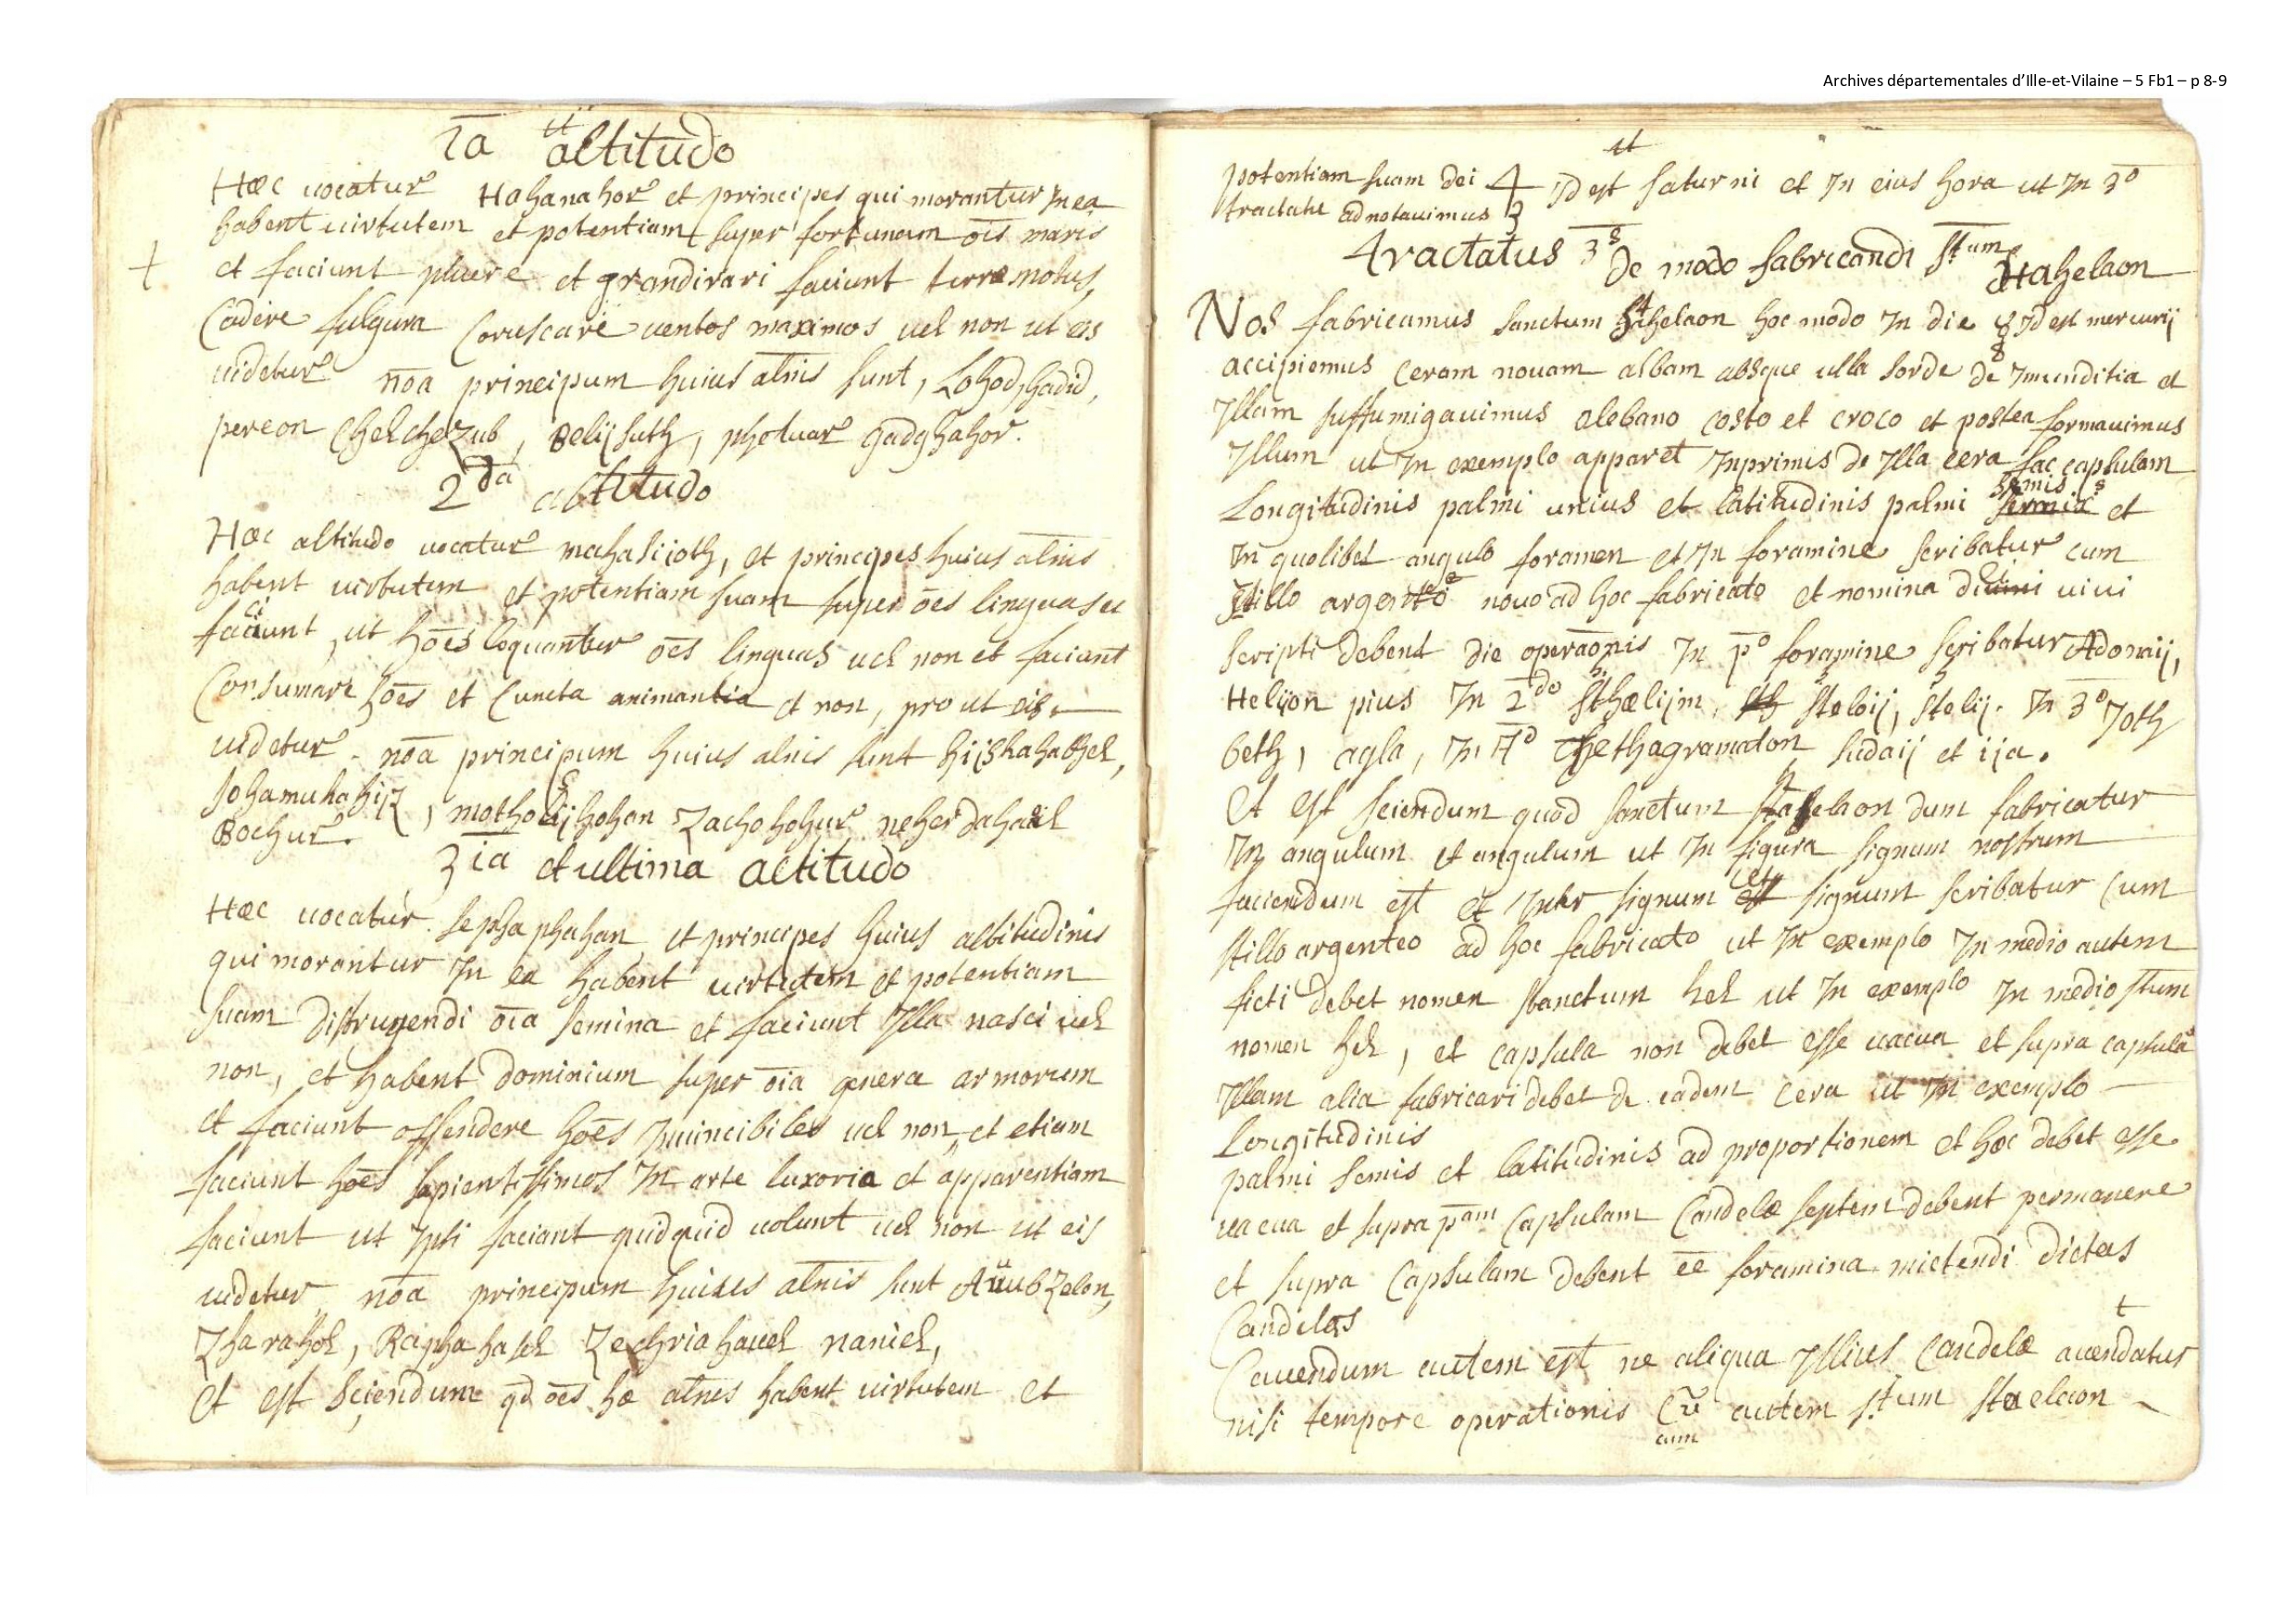 Archives départementales d'Ille-et-Vilaine – 5 Fb1 – p 8-9
1a altitudo
Hæc uocatur Hahanahor et principes qui morantur in ea
habent uirtutem et potentiam super fortunam ois maris
et faciunt pluere et grandirari faciunt terræmotus,
Cadere fulgura Coruscare uentos maximos uel non ut eis
uidetur nõa principum huius altnis sunt, Lohod, hadid,
pereon Chelchezub, Belijsuth, photuar gadghahor.
2da altitudo
Hæc altitudo uocatur mahalijoth, et principes huius altnis
habent uirtutem et potentiam suam super oẽs linguas et
faciunt, ut hoẽs loquantur oẽs linguas uel non et faciant
Consumare hoẽs et Cuncta animantia et non, pro ut eis
uidetur. nõa principum huius altnis sunt
Bochur.
3ia et ultima altitudo
Hæc uocatur. sephaphahan et principes huius altitudinis
qui morantur in ea habent uirtutem et potentiam
suam distruyendi oĩa semina et faciunt Illa nasci uel
non, et habent dominium super oĩa genera armorum
et faciunt offendere hoẽs Inuincibiles uel non, et etiam
faciunt hoẽs sapientissimos In arte luxoria et apparentiam
faciunt ut Ipsi faciant quidquid uolunt uel non ut eis
uidetur nõa principum huius altnis sunt Aüubzelon,
Zharahel, Raphahasel Zechriahauel naniel,
Et est Sciendum qd oẽs hæ altnes habent uirtutem et
potentiam suam dei ut Id est saturni et In eius hora ut In 3o
tractatu adnotauimus
Tractatus 3s de modo fabricandi stum Hahelaon
Nos fabricamus sanctum Sthelaon hoc modo In die ☿ Id est mercurij
accipiemus Ceram nouam albam absque ulla sorde de Imunditia et
Illam suffumigauimus olebano costo et croco et postea formauimus
Illum ut In exemplo apparet Inprimis de Illa cera fac capsulam
Longitudinis palmi unius et latitudinis palmi semis et
In quolibet angulo foramen et In foramine scribatur cum
stillo argenteo nouo ad hoc fabricato et nomina dei uiui
scripti debent die operaõnis In po foramine scribatur Adonaij,
Helyon pius In 2do Sthælijm, Steloij, stelij. In 3o Joth
beth, agla, In 4o Thethagramaton sadaij et ija.
Et est sciendum quod sanctum stahelaon dum fabricatur
In angulum et angulum ut In figura signum nostrum
faciendum est et Inter signum et signum scribatur Cum
stillo argenteo ad hoc fabricato ut In exemplo In medio autem
sicti debet nomen stanctum hel ut In exemplo In medio stum
nomen hel, et capsula non debet esse uacua et supra capsulã
Illam alia fabricari debet de eadem cera ut In exemplo
Longitudinis
palmi semis et latitudinis ad proportionem et hæc debet esse
uacua et supra pam Capsulam Candelæ septem debent permanere
et supra Capsulam debent ẽe foramina mietendi dictas
Candelas
Cauendum autem est ne aliqua Illius Candelæ accendatur
nisi tempore operationis Cũ autem stum Staelaon
cum